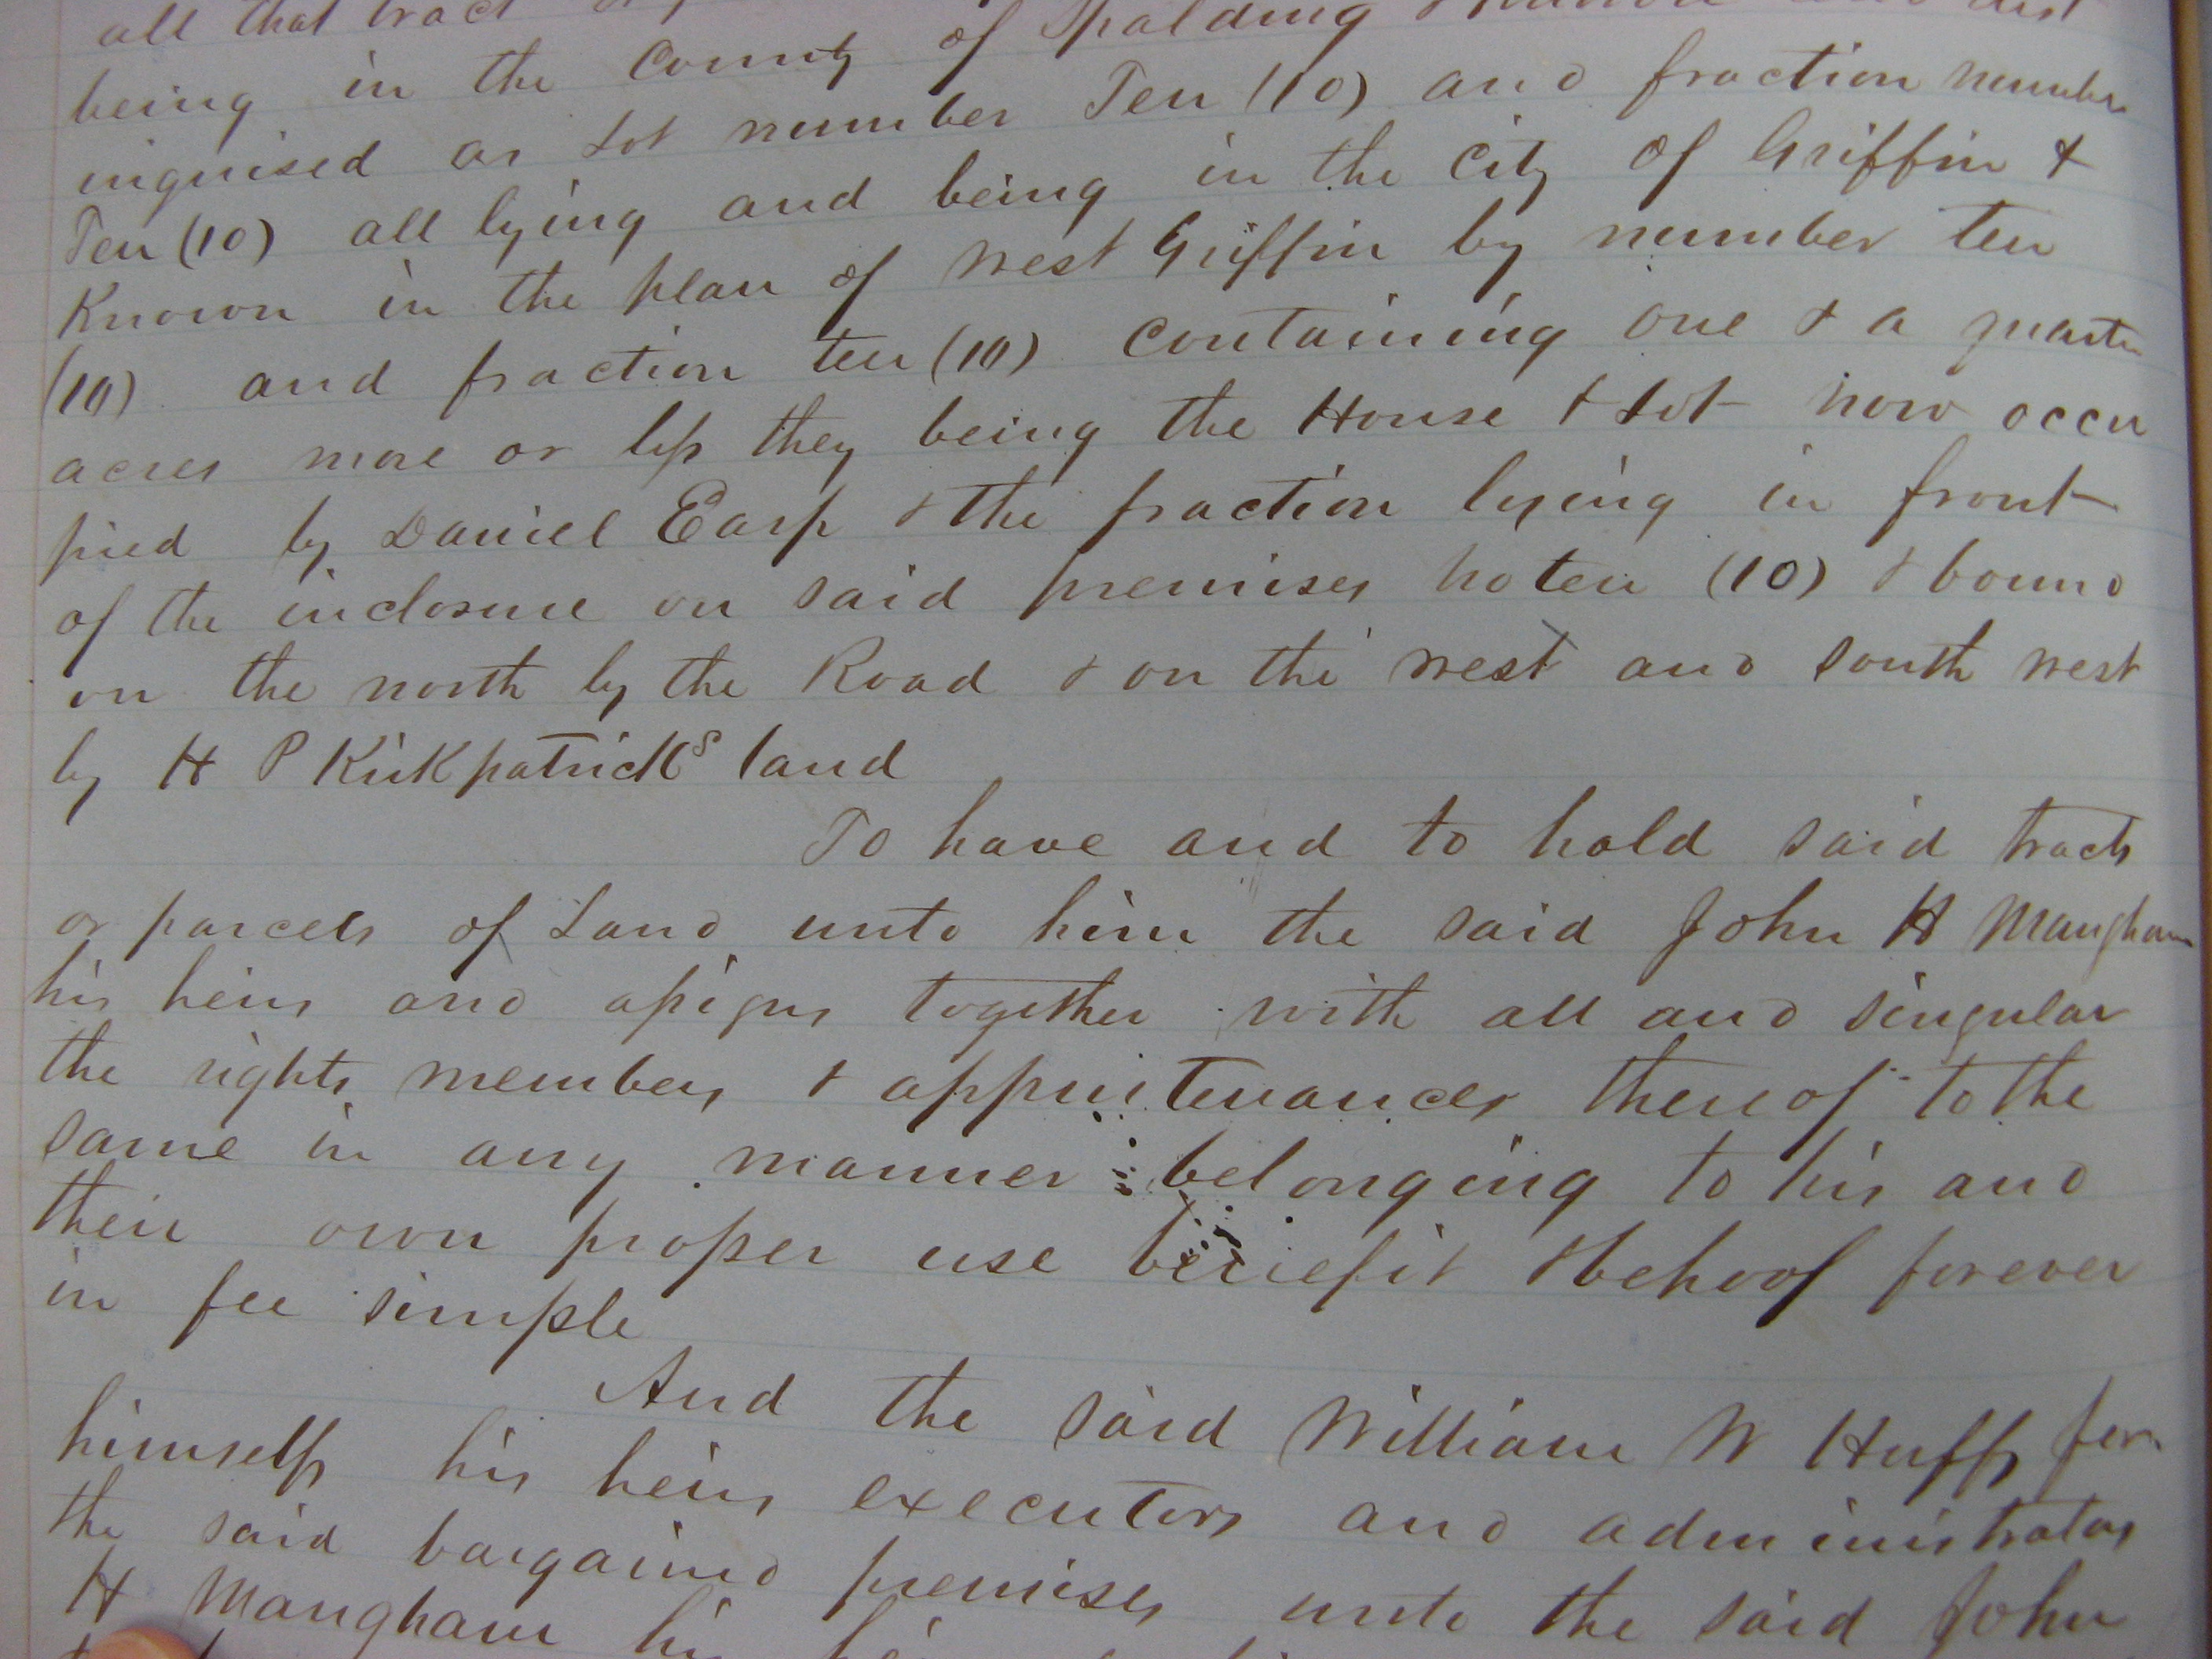 all that tract
being in the County of Spalding
inguised as Lot number Ten (10) and fraction number
Ten (10) all lying and being in the City of Griffin &
Known in the plan of West Griffin by number ten
(10) and fraction ten (10) containing one & a quarter
acres more or less they being the House & Lot now occu
pied by Daniel Earp & the fraction lying in front
of the inclosure on said premises no ten (10) & bound
on the north by the Road & on the west and South West
by H P Kirkpatricks land
To have and to hold said tracts
or parcels of Land unto him the said John H Mangham
his heirs and assigns together with all and singular
the rights members & appurtenances thereof to the
same in any manner belonging to his and
their own proper use benefit & behoof forever
in fee simple
And the said William W Huff for
himself his heirs executors and administrators
the said bargained premises unto the said John
H Mangham his